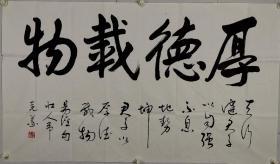 厚德載物
天行
健君子
以自強
不息
地勢
坤
君子以
厚德
載物
易經句